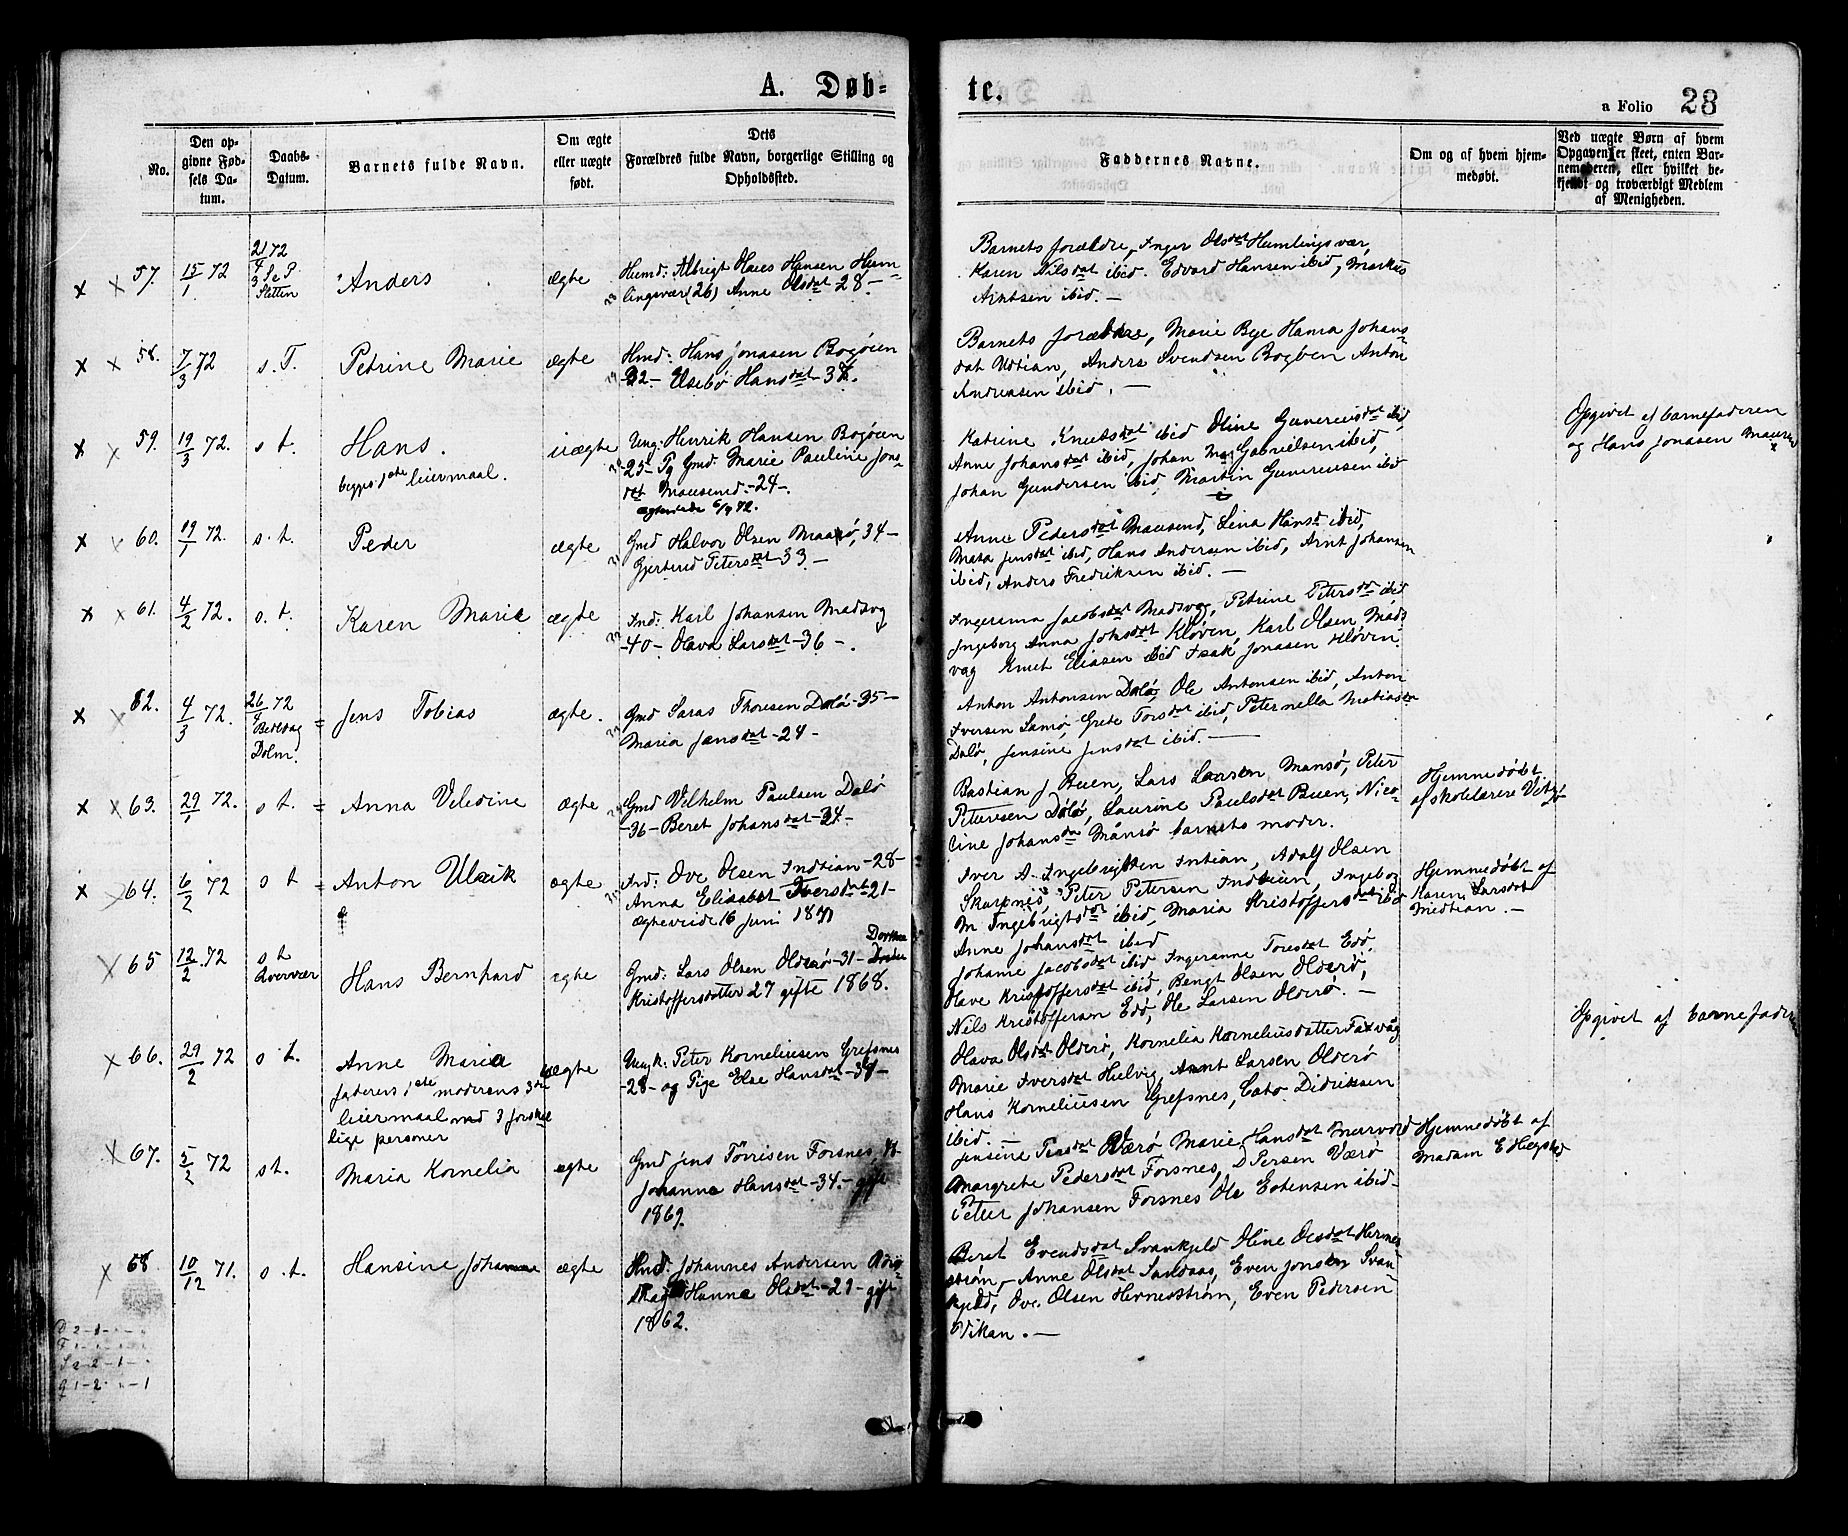 A. Døb=
te.
a Folio 28
No.
Den op-
givne Fød-
sels Da-
tum.
Daabs-
Datum.
Barnets fulde Navn.
Om ægte
eller uægte
født.
Dets
Forældres fulde Navn, borgerlige Stilling og
Opholdssted.
Faddernes Navne.
Om og af hvem hjem-
medøbt.
Ved uægte Børn af hvem
Opgaven er skeet, enten Bar-
nemoderen, eller hvilket be-
kjendt og troværdigt Medlem
af Menigheden.
x x 57. 15/1 72
21/4 72
3 S e P
Sletten
Anders
ægte
Husmd: Albrigt Hansen Hum-
lingsvær (26) Anne Olsdat 28 –
Barnets forældre, Inger Olsdat Humlingsvær,
Karen Nilsdat ibid. Edvard Hansen ibid, Markus
Arntsen ibid. –
x x 58. 7/3 72 s. T. Petrine Marie ægte
Hmd: Hans Jonasen Bogøien
32 – Elsebø Hansdat – 38.
Barnets forældre, Marie Bye Hanna Johans-
dat Udtian, Anders Svendsen Bogøen Anton
Andreasen ibid. –
x x 59. 19/3 72. s t. Hans. uægte
begges 1ste leiermaal.
Ung: Henrik Hansen Bogøien
25 – Pg Gmd: Marie Pauline Jons-
dat Mausund. – 24 –.
Katrine Knutsdat ibid Oline Gunereusdat ibid,
Anne Johansdat ibid, Johan M Gabrielsen ibid,
Johan Gundersen ibid, Martin Gunereusen ibid
Opgivet af barnefaderen
og Hans Jonasen Mausun
x x 60. 19/1 72. s. t. Peder ægte
Gmd Halvor Olsen Maasø, 34 –
Gjertrud Petersdat – 33 –
Anne Pedersdat Mausund, Lina Hansd ibid,
Meta Jensdat ibid, Hans Andersen ibid, Arnt Johansen
ibid, Anders Fredriksen ibid. –
x x 61. 4/2 72. s. t. Karen Marie ægte
Ind: Karl Johansen Madsvg
– 40 – Olava Larsdat – 36 –.
Ingeranna Jacobsdat Madsvag, Petrine Petersdat ibid
Ingeborg Anna Johsdat Kløven, Karl Olsen, Mads-
vag Knut Eliasen ibid Isak Jonasen Kløven.
x x 62. 4/3 72.
26/4 72
Bedevag
Dolm.
Jens Tobias ægte.
Gmd Saras Thoresen Dolø – 35 –
Maria Jensdat – 24 –
Anton Antonsen Dolø, Ole Antonsen ibid, Anton
Iversen Lamø, Grete Torsdat ibid, Peternella Matiasda
Dolø, Jensine Jensdat ibid. –
x x 63. 29/1 72. s t. Anna Veledine ægte
Gmd Vilhelm Paulsen Dolø
– 36 – Beret Johansdat – 34 –.
Bastian J. Buen, Lars Larsen Mansø, Peter
Petersen Dolø, Laurine Paulsdat Buen, Nico-
line Johansda Månsø barnets moder.
Hjemmedøbt
af skolelærere
x x 64. 6/2 72 s t Anton Ulrik ægte
Ind: Ove Olsen Indtian – 28 –
Anna Elisabet Iversdat – 21 –
ægteviede 16 juni 1871
Iver A. Ingebrigtsen Intian, Adolf Olsen
Skarpnes, Peter Petersen Indtien, Ingeborg
M Ingebrigtsdat ibid, Maria Kristoffersdat ibid
Anne Johansdat ibid
Hjemmedøbt af
Karen Larsdat
Midtian. –
x 65 12/2 72 s t
Qvervær
Hans Bernhard ægte
Gmd: Lars Olsen Olderø – 31 – Dorthea
Kristoffersdatter 27 gifte 1868.
Johanne Jacobsdat ibid Ingeranne Toresdat Edø,
Have Kristoffersdat ibid, Bengt Olsen Olderø,
Nils Kristoffersen Edø, Ole Larsen Olderø. –
x 66. 29/2 72 s t. Anne Maria uægte
faderens 1ste moderens 3die
leiermaal med 3 forskel
lige personer
Ungk: Peter Korneliusen Grefsnes
– 28 – og Pige Else Hansdat – 34 –
Olava Olsdat Olderø, Kornelia Korneliusdatter Faxvåg
Marie Iversdat Hielvig, Arnt Larsen Olderø
Hans Korneliusen Grefsnes, Cato Didriksen
ibid. –
Opgivet af barnefader
x 67. 5/2 72 st. Maria Kornelia ægte
Gmd Jens Torrisen Forsnes,
Johanna Hansdat – 34 – gift
1869.
Jensine Pensdat Værø, Marie Hansdat
Margrete Pedersdat Forsnes, D Persen Værø
Peter Johansen Forsnes Ole Estensen ibid –
Hjemmedøbt af
Madam E Hegstad
x 68 10/12 71. s. t. Hansine Johanna ægte
Hmd: Johannes Andersen
Hanna Olsdat – 29 – gift
1862.
Beret Evendsdat Svankjeld Oline Olsdat Hernes
strøm, – Anne Olsdat Sandaas, Even Jonsen Svan-
kjeld, Ove Olsen Hernesstrøm, Even Pedersen
Vikan. –